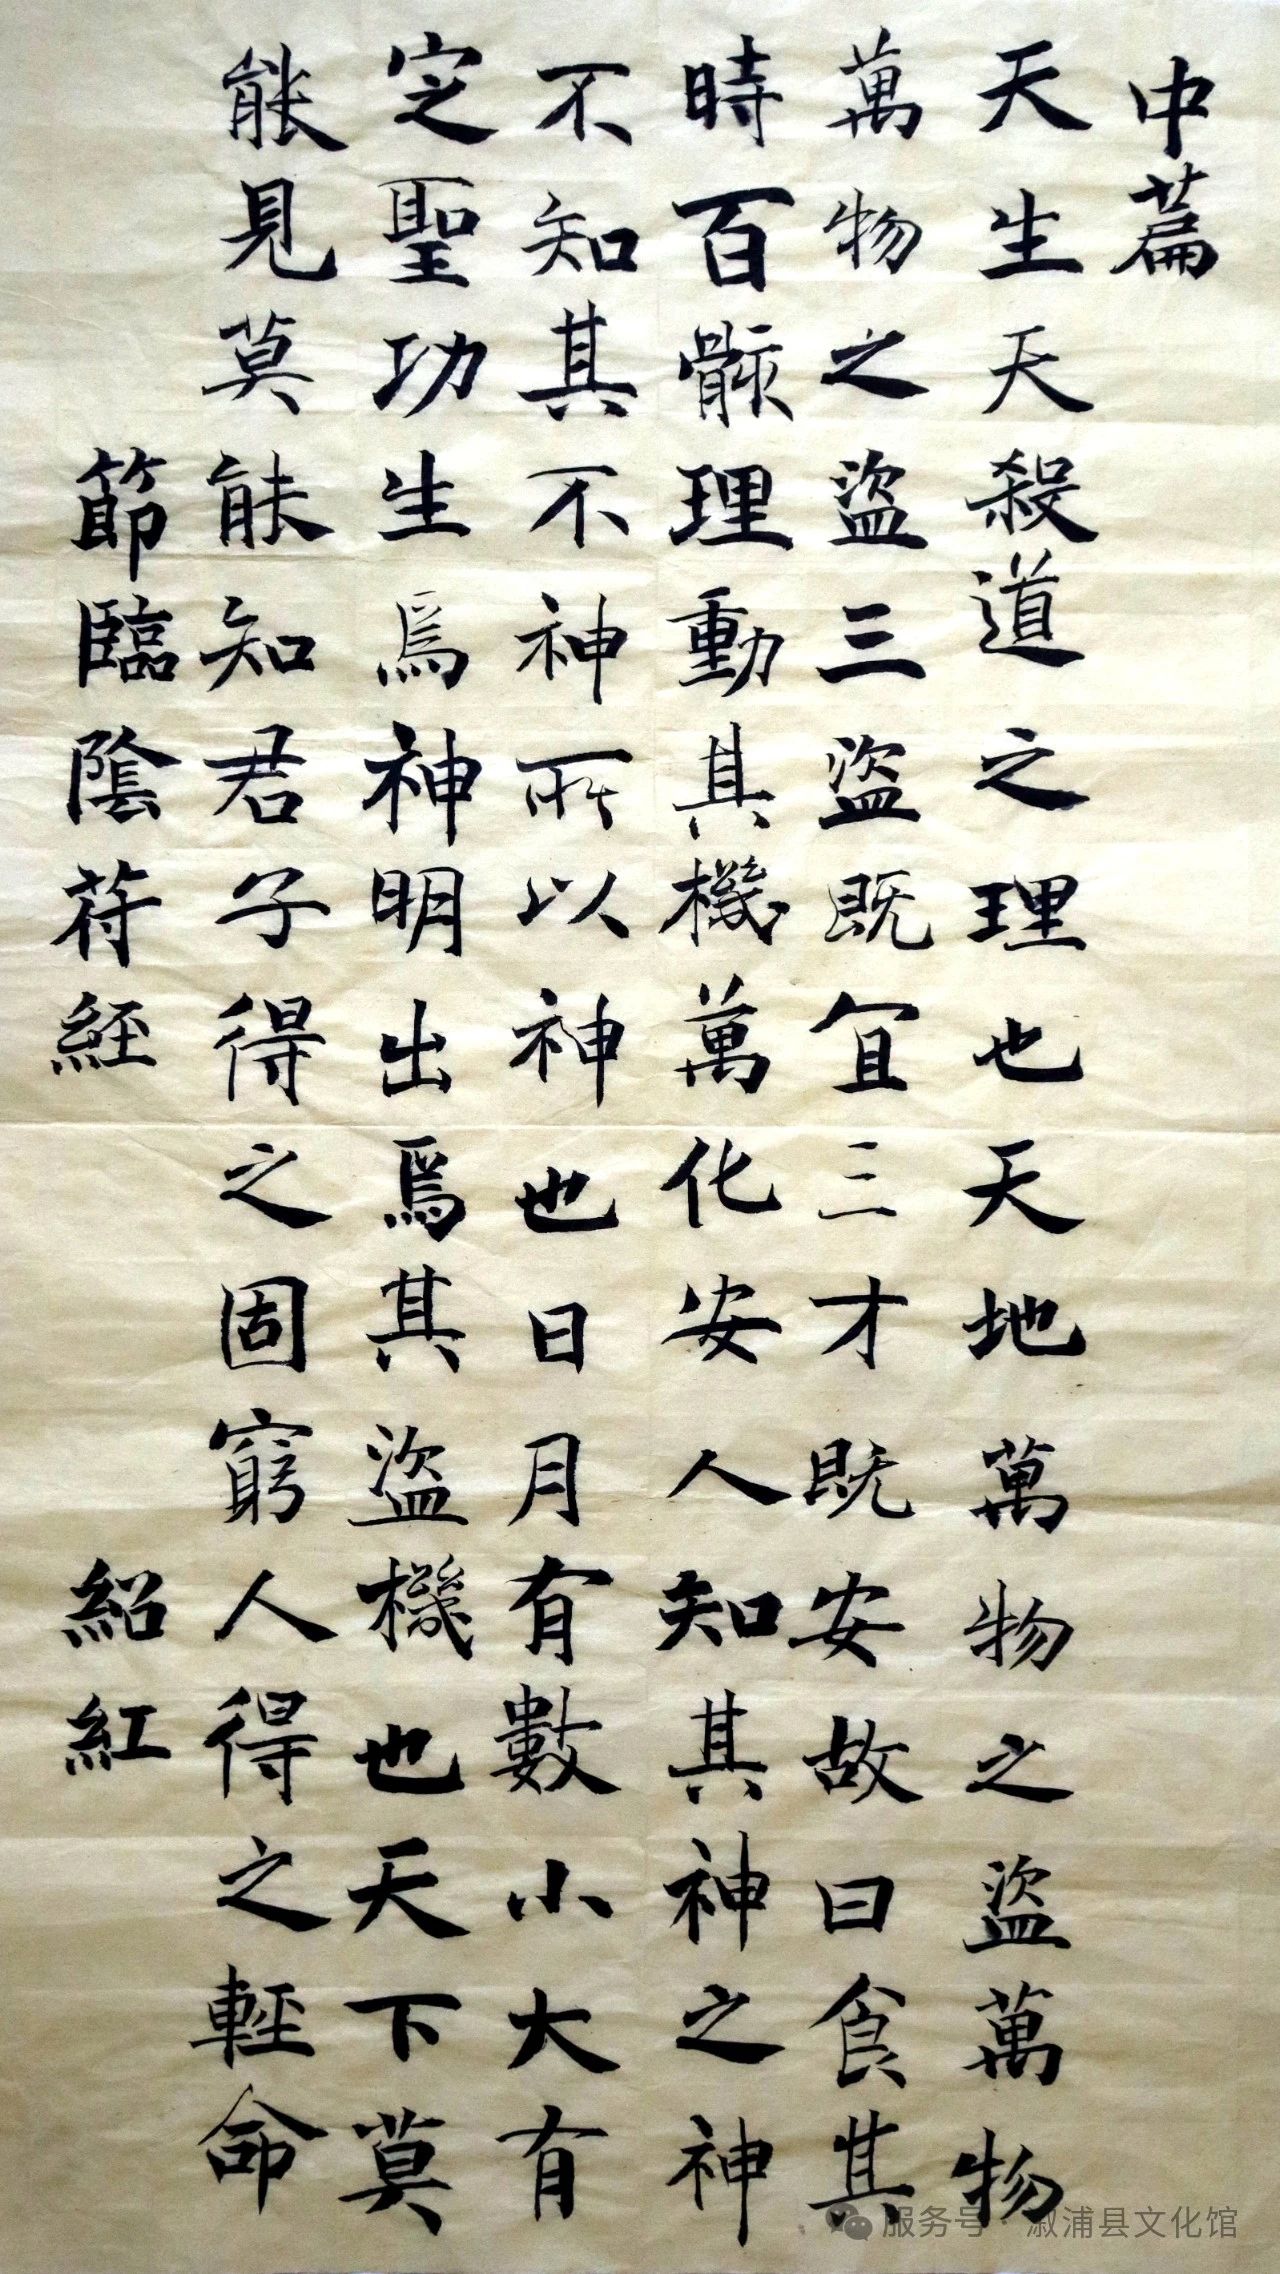 中篇
天生天殺道之理也天地萬物之盜萬物
萬物之盜三盜既宜三才既安故曰食其
時百骸理動其機萬化安人知其神之神
不知其不神所以神也日月有數小大有
定聖功生焉神明出焉其盜機也天下莫
能見莫能知君子得之固窮人得之輕命
節臨陰苻經
紹紅
服务号·溆浦县文化馆